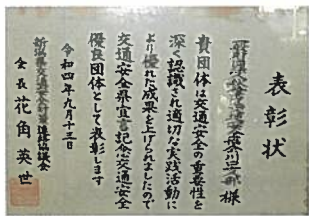 表彰状
様
貴団体は交通安全の重要性を
深く認識され適切な実践活動に
より優れた成果を上げられましたので
交通安全県宣言記念交通安全
優良団体として表彰します
令和四年九月十三日
新潟県交通安全対策連絡協議会
会長 花角英世